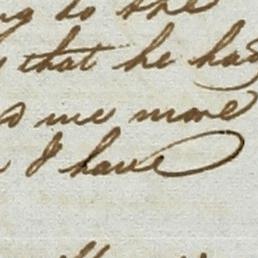 to the
that he had
me more
I have